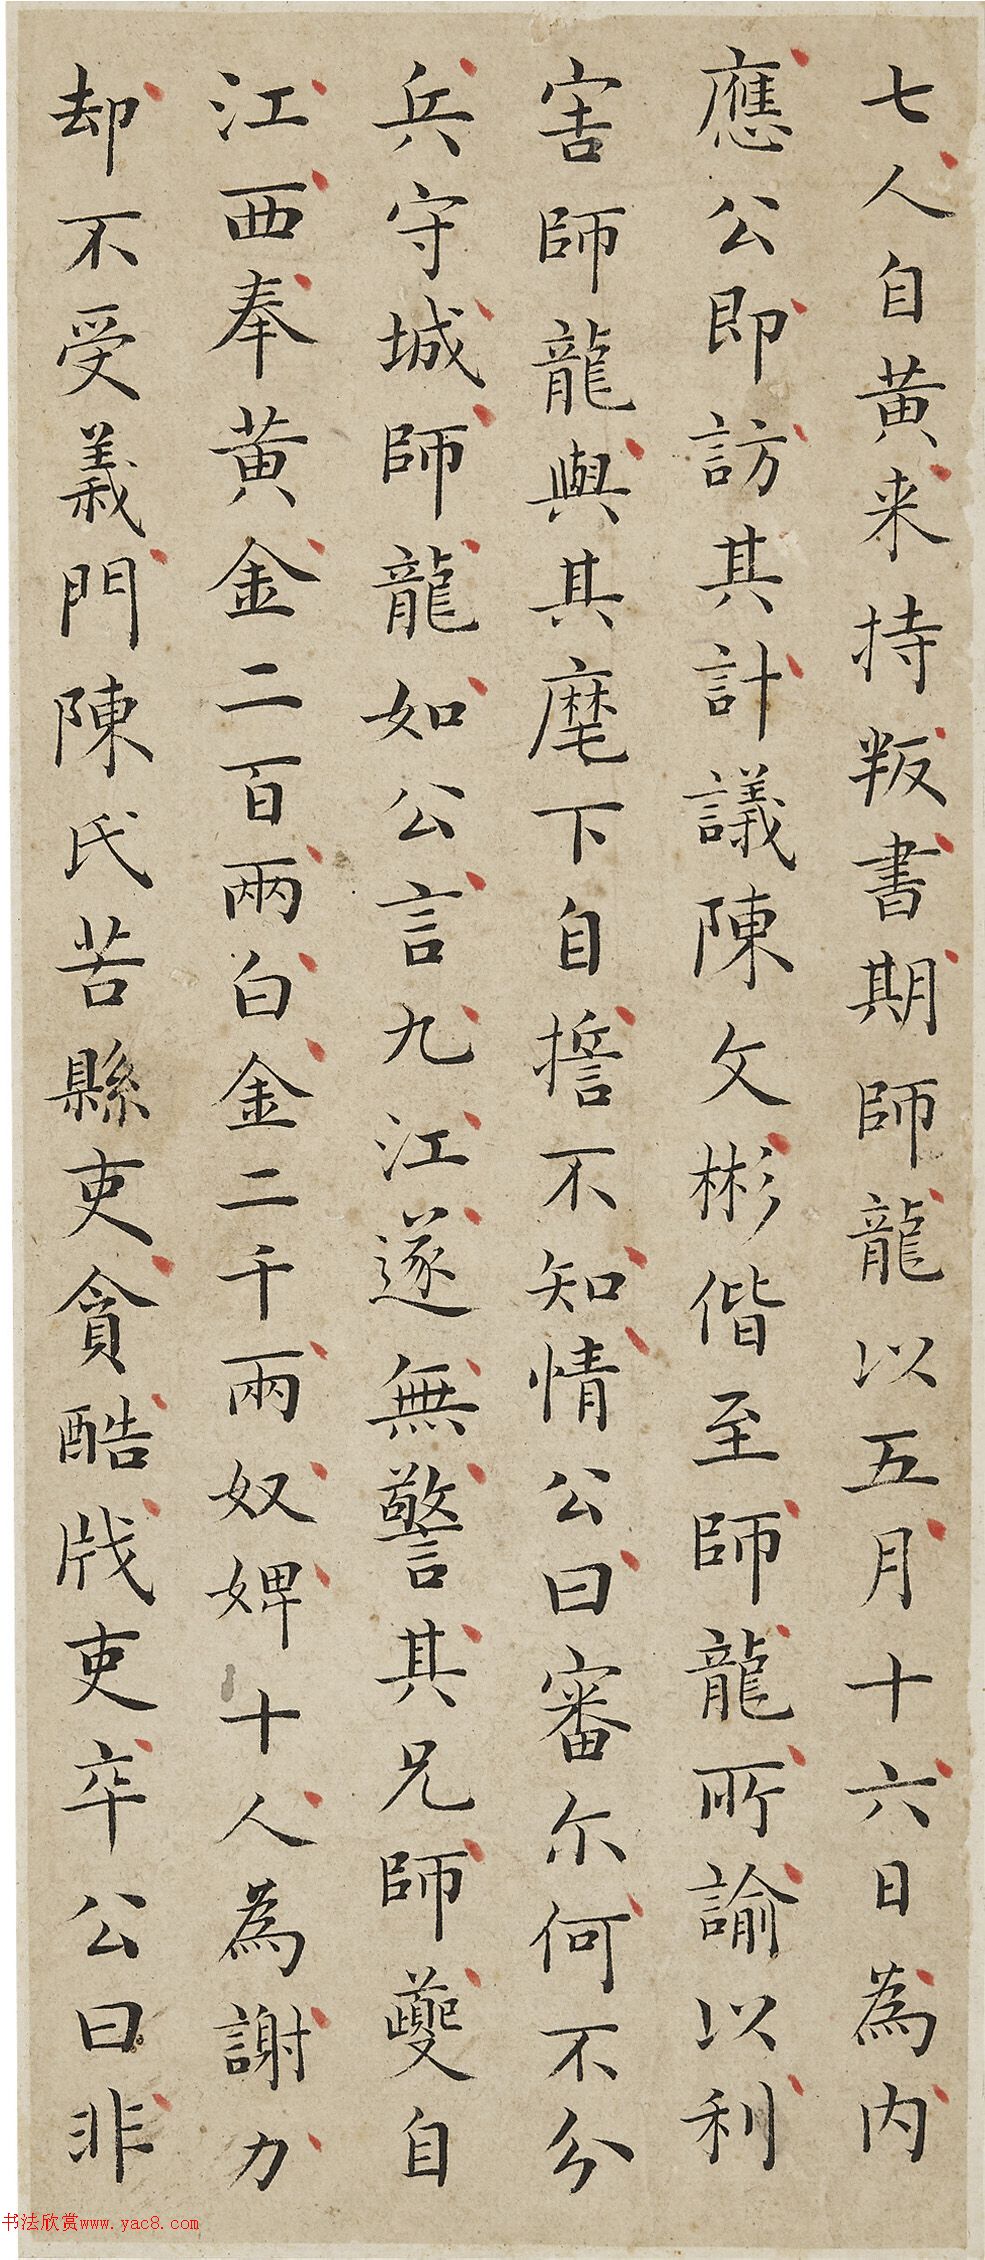 七人自黄来持叛書期師龍以五月十六日為内
應公即訪其計議陳文彬偕至師龍所諭以利
害師龍與其麾下自擔不知情公曰審尔何不分
兵守城師龍如公言九江遂無警其兄師夔自
江西奉黄金二百兩白金二千兩奴婢十人為謝力
却不受義門陳氏苦縣吏貪酷戕吏卒公曰非
书法欣赏www.yac8.com